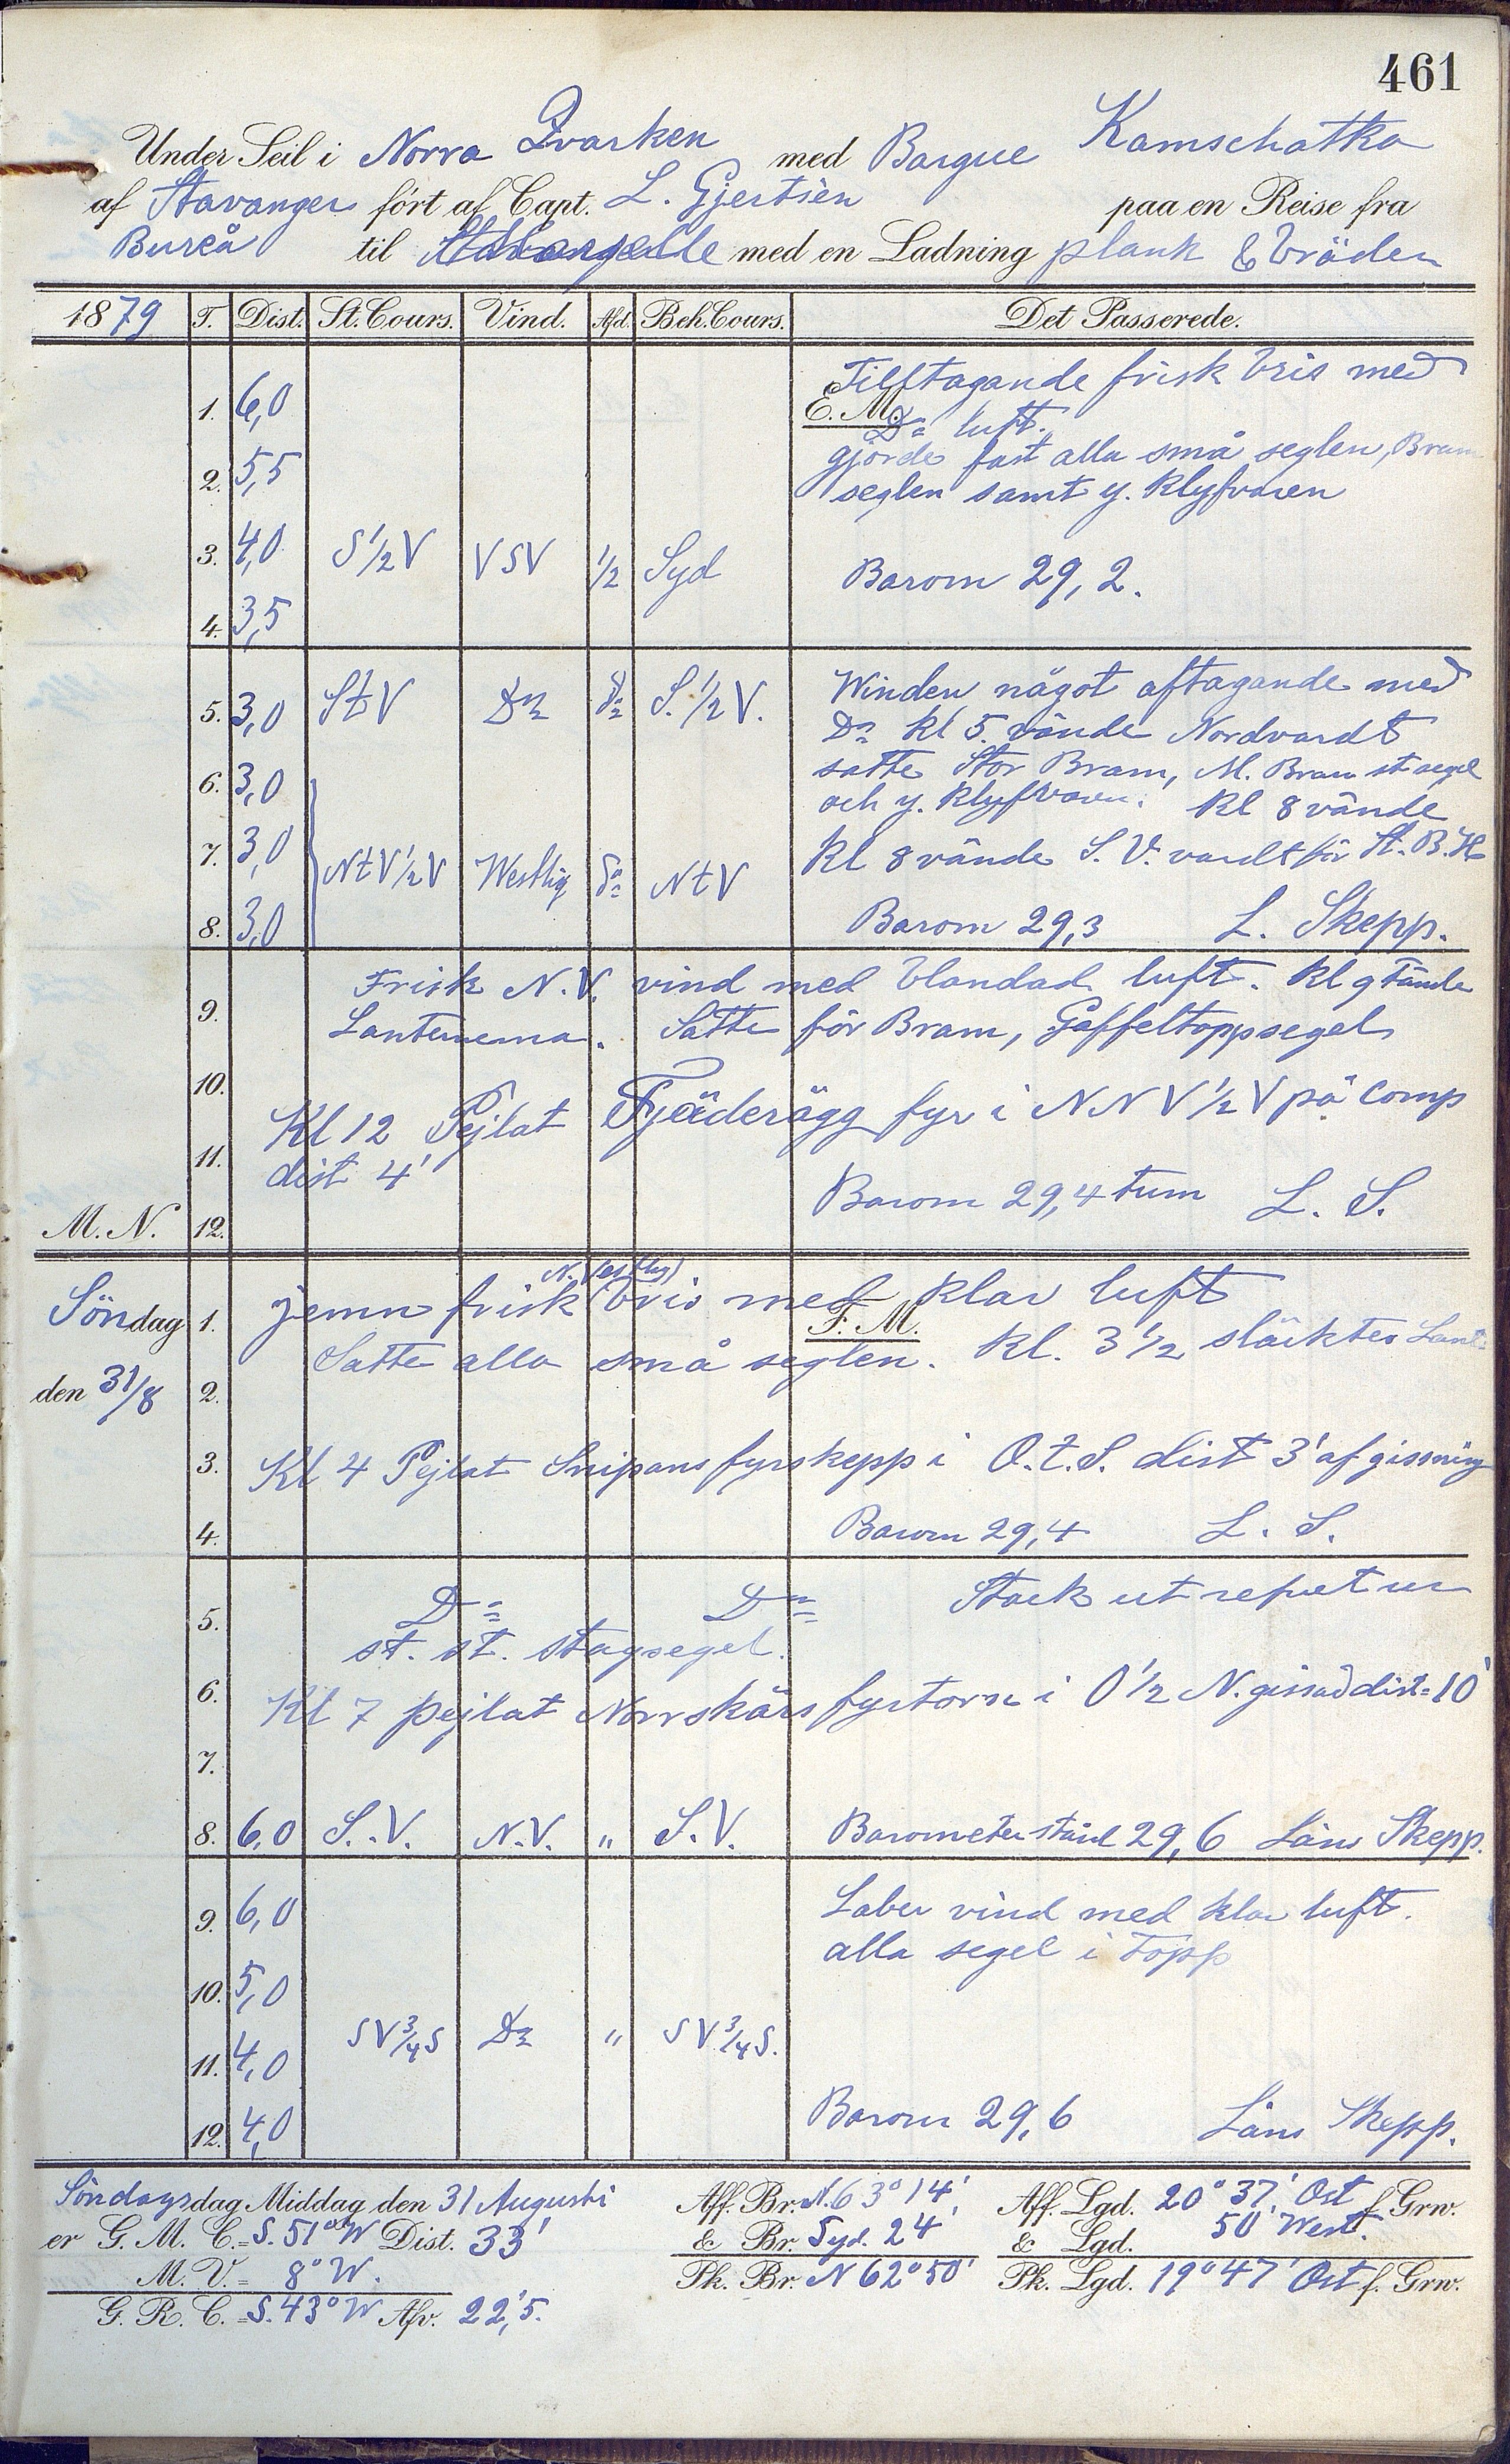 461
Under Seil i Norra Qvarken med Barque Kamschatka
af Stavanger fört af Capt. L. Gjertsen paa en Reise fra
Bureå til med en Ladning plank & bräden
1879 T. Dist. St. Cours. Vind. Afd. Beh. Cours. Det Passerede.
Tilltagande frisk bris med
1. 6,0 E. M. Do luft.
gjorde fast alla små seglen, Bram
2. 5,5 seglen samt y. Klyfvaren
3. 4,0 S 1/2 V VSV 1/2 Syd Barom 29,2.
4. 3,5
Winden något aftagande med
5. 3,0 StV Do do S. 1/2 V. Do kl 5. vände Nordvardt
satte Stor Bram, M. Bram st segel
6. 3,0 och y. Klyfvaren. Kl 8 vände
7. 3,0 NtV 1/2 V Westlig do NtV Kl 8 vände S. V. vardt för St. B. H
8. 3,0 Barom 29,3 L. Skepp.
Frisk N.V. vind med blandad luft. Kl 9 tände
9. Lanternerna. Satte för Bram, Gaffeltoppsegel
10.
Kl 12 Pejlat Fjäderägg fyr i NNV 1/2 V på Comp
11. dist 4'
Barom 29,4 tum L. S.
M. N. 12.
N. Vestlig
Söndag 1. jemn frisk bris med klar luft
F. M.
Satte alla små seglen. Kl. 3 1/2 släcktes Lant.
den 31/8 2.
3. Kl 4 Pejlat Snipans fyrskepp i O.t.S. dist 3' af gissning
4. Barom 29,4 L. S.
5. Do Do Stack ut refvet ur
st. st. stagsegel.
6. Kl 7 pejlat Norrskärs fyrtorn i O 1/2 N. gissad dist = 10'
7.
8. 6,0 S.V. N.V. " S.V. Barometerstånd 29,6 Läns Skepp.
9. 6,0 Laber vind med klar luft.
alla segel i Topp
10. 5,0
11. 4,0 SV 3/4 S Do " SV 3/4 S.
12. 4,0 Barom 29,6 Läns Skepp.
Söndagsdag Middag den 31 Augusti Aff. Br. N. 63° 14' Aff. Lgd. 20° 37' Ost f. Grw.
er G. M. C. = S. 51° W Dist. 33' & Br. Syd. 24' & Lgd. 50' West.
M. V. = 8° W. Pk. Br. N 62° 50' Pk. Lgd. 19° 47' Ost f. Grw.
G. R. C. = S. 43° W Afv. 22',5.